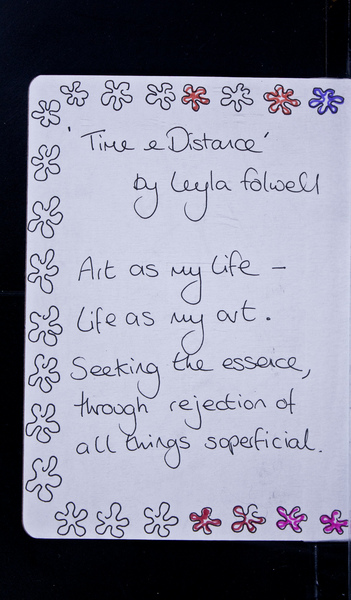 'Time & Distance'
by Leyla Folwell
Art as my life –
Life as my art.
Seeking the essence,
through rejection of
all things soperficial.